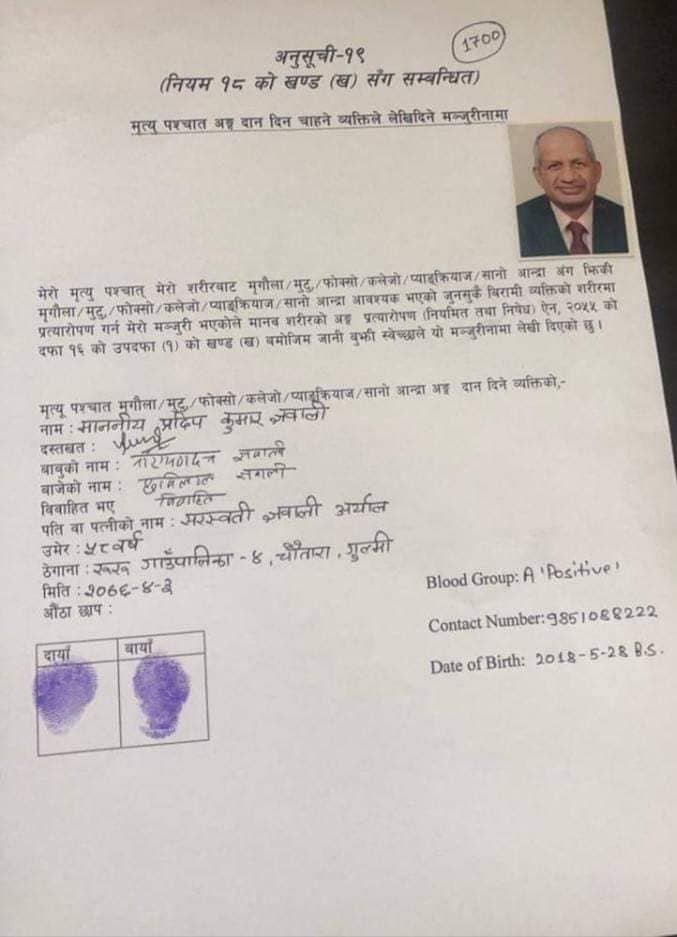 1700
अनुसूची-१९
(नियम १८ को खण्ड (ख) सँग सम्बन्धित)
मृत्यु पश्चात अङ्ग दान दिन चाहने व्यक्तिले लेखिदिने मञ्जुरीनामा
मेरो मृत्यु पश्चात् मेरो शरीरबाट मृगौला/मुटु/फोक्सो/कलेजो/प्याङ्क्रियाज/सानो आन्द्रा अंग झिकी
मृगौला/मुटु/फोक्सो/कलेजो/प्याङ्क्रियाज/सानो आन्द्रा आवश्यक भएको जुनसुकै बिरामी व्यक्तिको शरीरमा
प्रत्यारोपण गर्न मेरो मञ्जुरी भएकोले मानव शरीरको अङ्ग प्रत्यारोपण (नियमित तथा निषेध) ऐन, २०५५ को
दफा १६ को उपदफा (१) को खण्ड (ख) बमोजिम जानी बुझी स्वेच्छाले यो मञ्जुरीनामा लेखी दिएको छु।
मृत्यू पश्चात मृगौला/मुटु/फोक्सो/कलेजो/प्याङ्क्रियाज/सानो आन्द्रा अङ्ग दान दिने व्यक्तिको,-
नाम : माननीय प्रदिप कुमार ज्ञवाली
दस्तखत :
बाबुको नाम : ज्ञवाली
बाजेको नाम :
बिबाहित भए विवाहित
पति वा पत्नीको नाम : सरस्वती ज्ञवाली अर्याल
उमेर : ५८ वर्ष
ठेगाना : रूरू गाउँपालिका - ४, चौतारा, गुल्मी
मिति : २०७६-४-३
औंठा छाप :
दायाँ बायाँ
Blood Group: A 'Positive'
Contact Number: 9851088222
Date of Birth: 2018-5-28 B.S.